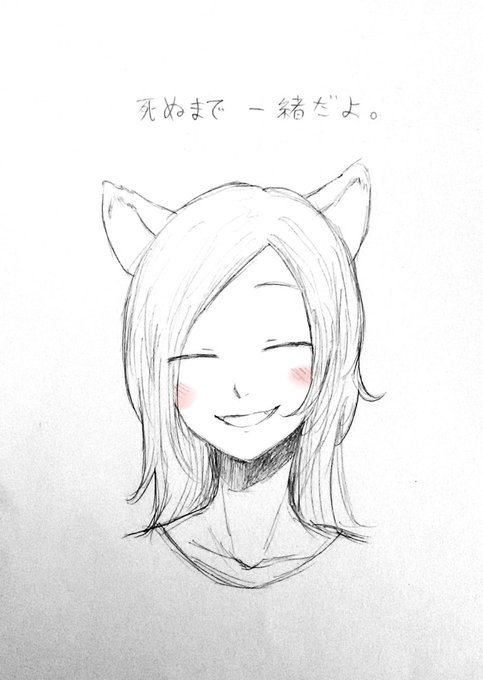 死ぬまで 一緒だよ。